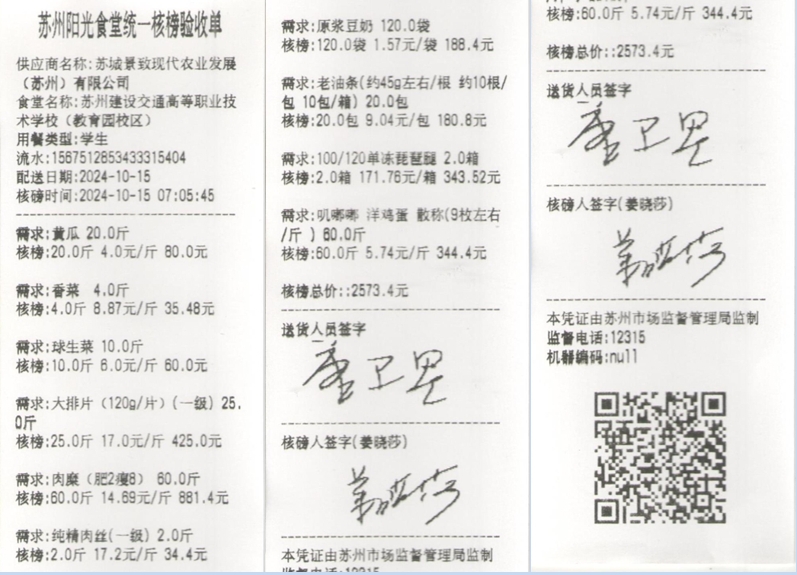 苏州阳光食堂统一核榜验收单
供应商名称:苏城景致现代农业发展
（苏州）有限公司
食堂名称:苏州建设交通高等职业技
术学校（教育园校区）
用餐类型:学生
流水:1567512853433315404
配送日期:2024-10-15
核磅时间:2024-10-15 07:05:45
需求:黄瓜 20.0斤
核榜:20.0斤 4.0元/斤 80.0元
需求:香菜 4.0斤
核榜:4.0斤 8.87元/斤 35.48元
需求:球生菜 10.0斤
核榜:10.0斤 6.0元/斤 60.0元
需求:大排片（120g/片）(一级) 25.
0斤
核榜:25.0斤 17.0元/斤 425.0元
需求:肉糜（肥2瘦8） 60.0斤
核榜:60.0斤 14.69元/斤 881.4元
需求:纯精肉丝(一级) 2.0斤
核榜:2.0斤 17.2元/斤 34.4元
需求:原浆豆奶 120.0袋
核榜:120.0袋 1.57元/袋 188.4元
需求:老油条(约45g左右/根 约10根/
包 10包/箱) 20.0包
核榜:20.0包 9.04元/包 180.8元
需求:100/120单冻琵琶腿 2.0箱
核榜:2.0箱 171.76元/箱 343.52元
需求:叽嘟嘟 洋鸡蛋 散称(9枚左右
/斤 ) 60.0斤
核榜:60.0斤 5.74元/斤 344.4元
核榜总价::2573.4元
送货人员签字
核磅人签字(姜晓莎)
姜晓莎
本凭证由苏州市场监督管理局监制
监督电话:12315
核榜:60.0斤 5.74元/斤 344.4元
核榜总价::2573.4元
送货人员签字
核磅人签字(姜晓莎)
姜晓莎
本凭证由苏州市场监督管理局监制
监督电话:12315
机器编码:null